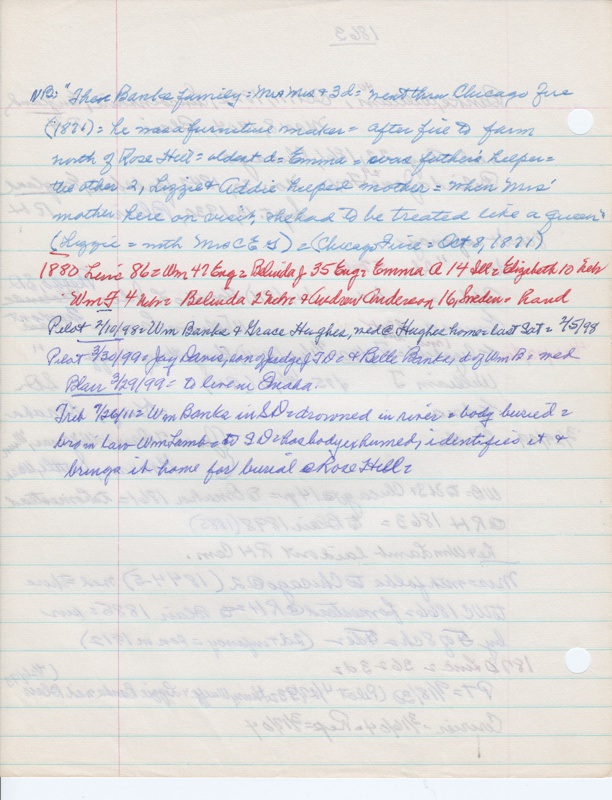 NB: "These Banks family = Mr & Mrs & 3 d = went thru Chicago fire
(1871) = he was a furniture maker = after fire to farm
north of Rose Hill = oldest d = Emma = was father's helper =
the other 2, Lizzie & Addie helped mother = when Mrs'
mother here on visit, she had to be treated like a queen"
(Lizzie = mth Mrs C E S) = (Chicago Fire = Oct 8, 1871)
1880 Line 86 = Wm 42 Eng = Belinda J 35 Eng = Emma A 14 Ill = Elizabeth 10 Nebr
Wm F 4 Nebr = Belinda 2 Nebr & Andrew Anderson 16, Sweden = hand
Pilot 2/10/98 = Wm Banks & Grace Hughes, med @ Hughes home = last Sat = 2/5/98
Pilot 3/30/99 = Jay Davis, son of Judge J D = & Belle Banks, d of Wm B = med
Blair 3/29/99 = to live in Omaha.
Trib 7/26/11 = Wm Banks in SD = drowned in river = body buried =
bro in law Wm Lamb = to SD = has body exhumed, identifies it &
brings it home for burial @ Rose Hill =